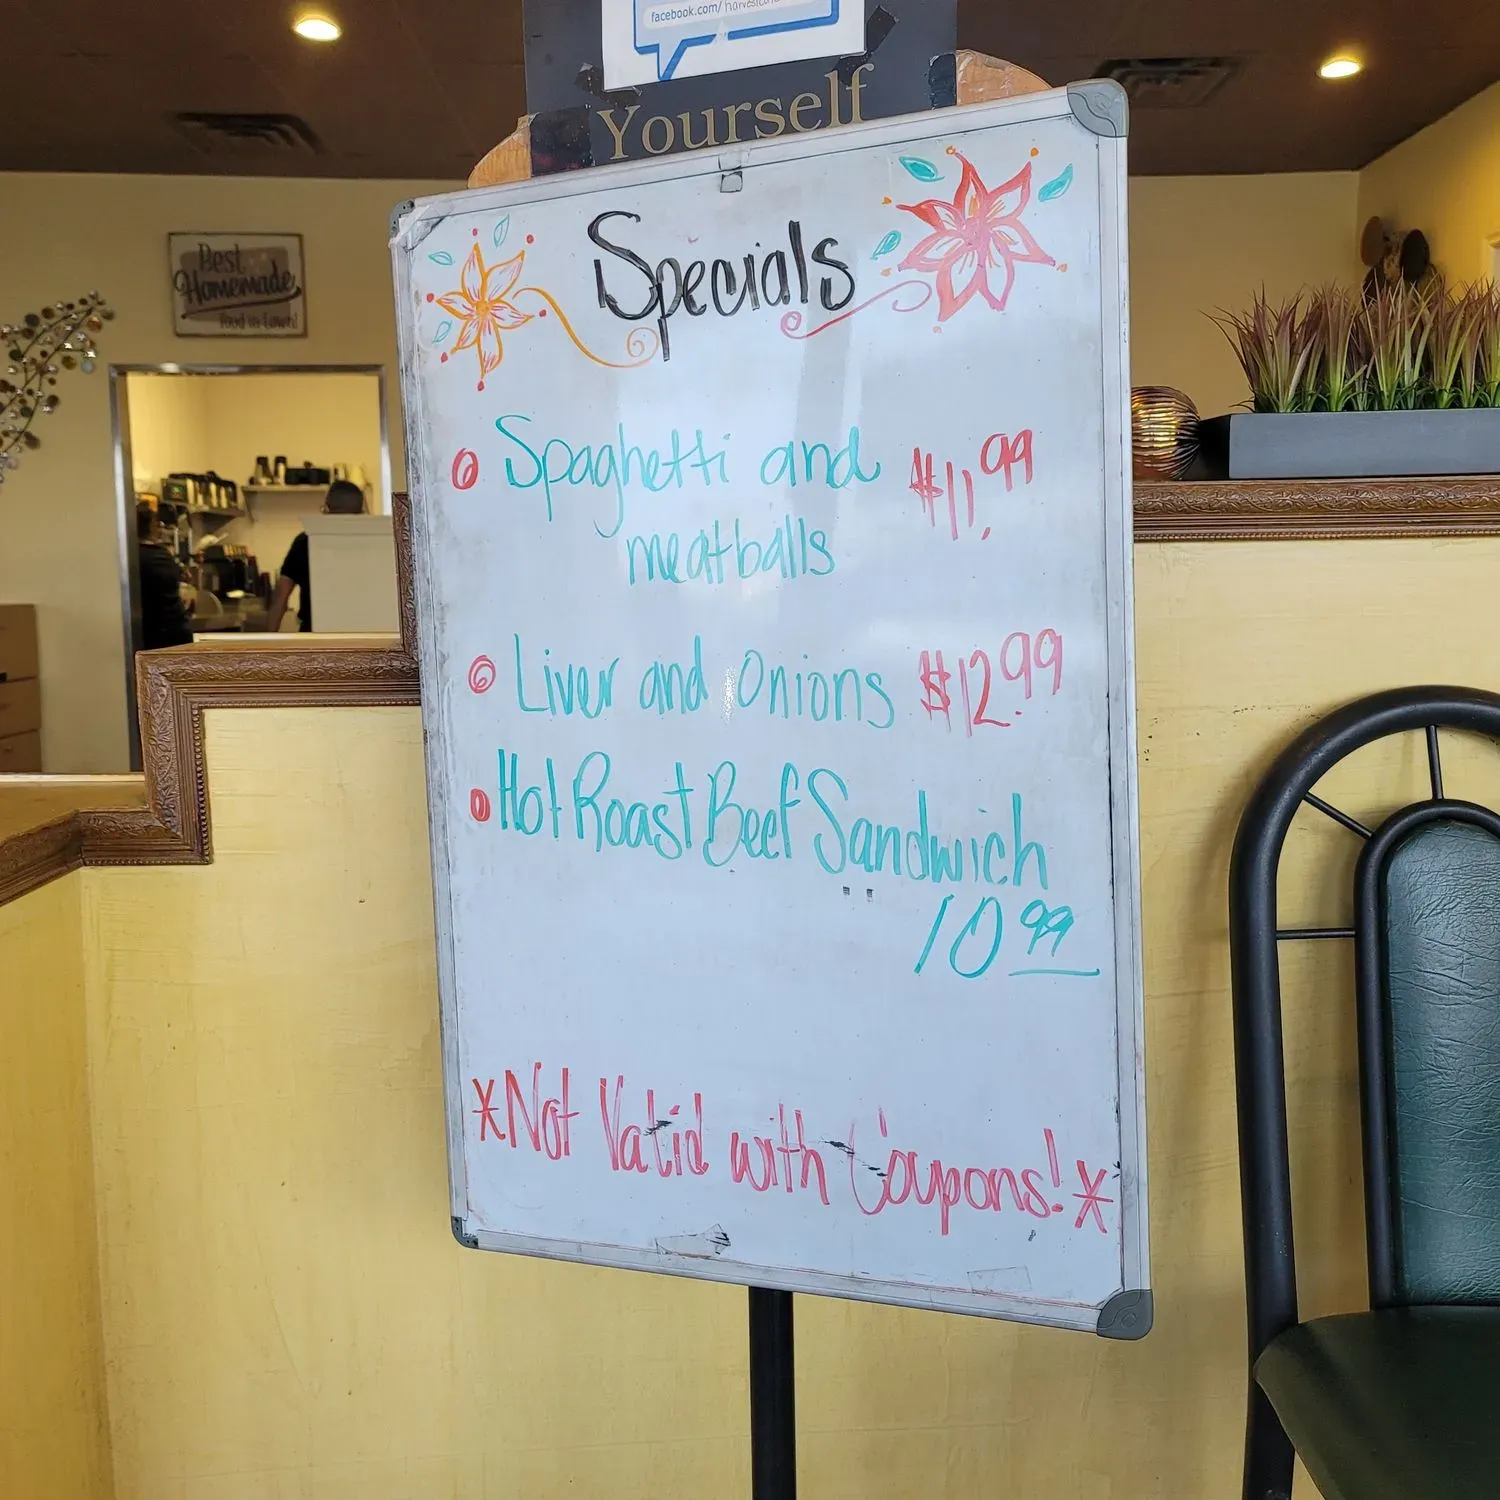 facebook.com/
Yourself
Best
Homemade
Food in Town!
Specials
Spaghetti and $11.99
meatballs
Liver and Onions $12.99
Hot Roast Beef Sandwich
10 99
*Not Valid with Coupons!*